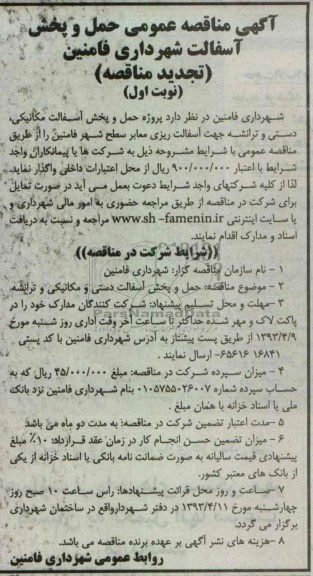 آگهی مناقصه عمومی حمل و پخش
آسفالت شهرداری فامنین
(تجدید مناقصه)
(نوبت اول)
شهرداری فامنین در نظر دارد پروژه حمل و پخش آسفالت مکانیکی،
دستی و ترانشه جهت آسفالت ریزی معابر سطح شهر فامنین را از طریق
مناقصه عمومی با شرایط مشروحه ذیل به شرکت ها یا پیمانکاران واجد
شرایط با اعتبار ۹۰۰/۰۰۰/۰۰۰ ریال از محل اعتبارات داخلی واگذار نماید.
لذا از کلیه شرکتهای واجد شرایط دعوت بعمل می آید در صورت تمایل
برای شرکت در مناقصه از طریق مراجعه حضوری به امور مالی شهرداری و
یا سایت اینترنتی www.sh-famenin.ir مراجعه و نسبت به دریافت
اسناد و مدارک اقدام نمایند.
((شرایط شرکت در مناقصه))
۱ - نام سازمان مناقصه گزار: شهرداری فامنین
۲ - موضوع مناقصه: حمل و پخش آسفالت دستی و مکانیکی و ترانشه
۳-مهلت و محل تسلیم پیشنهاد: شرکت کنندگان مدارک خود را در
پاکت لاک و مهر شده حداکثر تا ساعت آخر وقت اداری روز شنبه مورخ
۱۳۹۳/۴/۹ از طریق پست پیشتاز به آدرس شهرداری فامنین با کد پستی
۱۶۸۴۱ ۶۵۶۱۶- ارسال نمایند .
۴ - میزان سپرده شرکت در مناقصه: مبلغ ۴۵/۰۰۰/۰۰۰ ریال که به
حساب سپرده شماره ۰۱۰۵۷۵۵۰۲۶۰۰۷ بنام شهرداری فامنین نزد بانک
ملی یا اسناد خزانه با همان مبلغ .
۵ -مدت اعتبار تضمین شرکت در مناقصه: به مدت دو ماه می باشد
۶ - میزان تضمین حسن انجام کار در زمان عقد قرارداد: ۱۰٪ مبلغ
پیشنهادی قیمت سالیانه به صورت ضمانت نامه بانکی یا اسناد خزانه از یکی
از بانک های معتبر کشور.
۷ -ساعت و روز محل قرائت پیشنهادها: راس ساعت ۱۰ صبح روز
چهارشنبه مورخ ۱۳۹۳/۴/۱۱ در دفتر شهردارواقع در ساختمان شهرداری
برگزار می گردد.
۸ -هزینه های نشر آگهی بر عهده برنده مناقصه می باشد.
روابط عمومی شهرداری فامنین
ParsNamadData